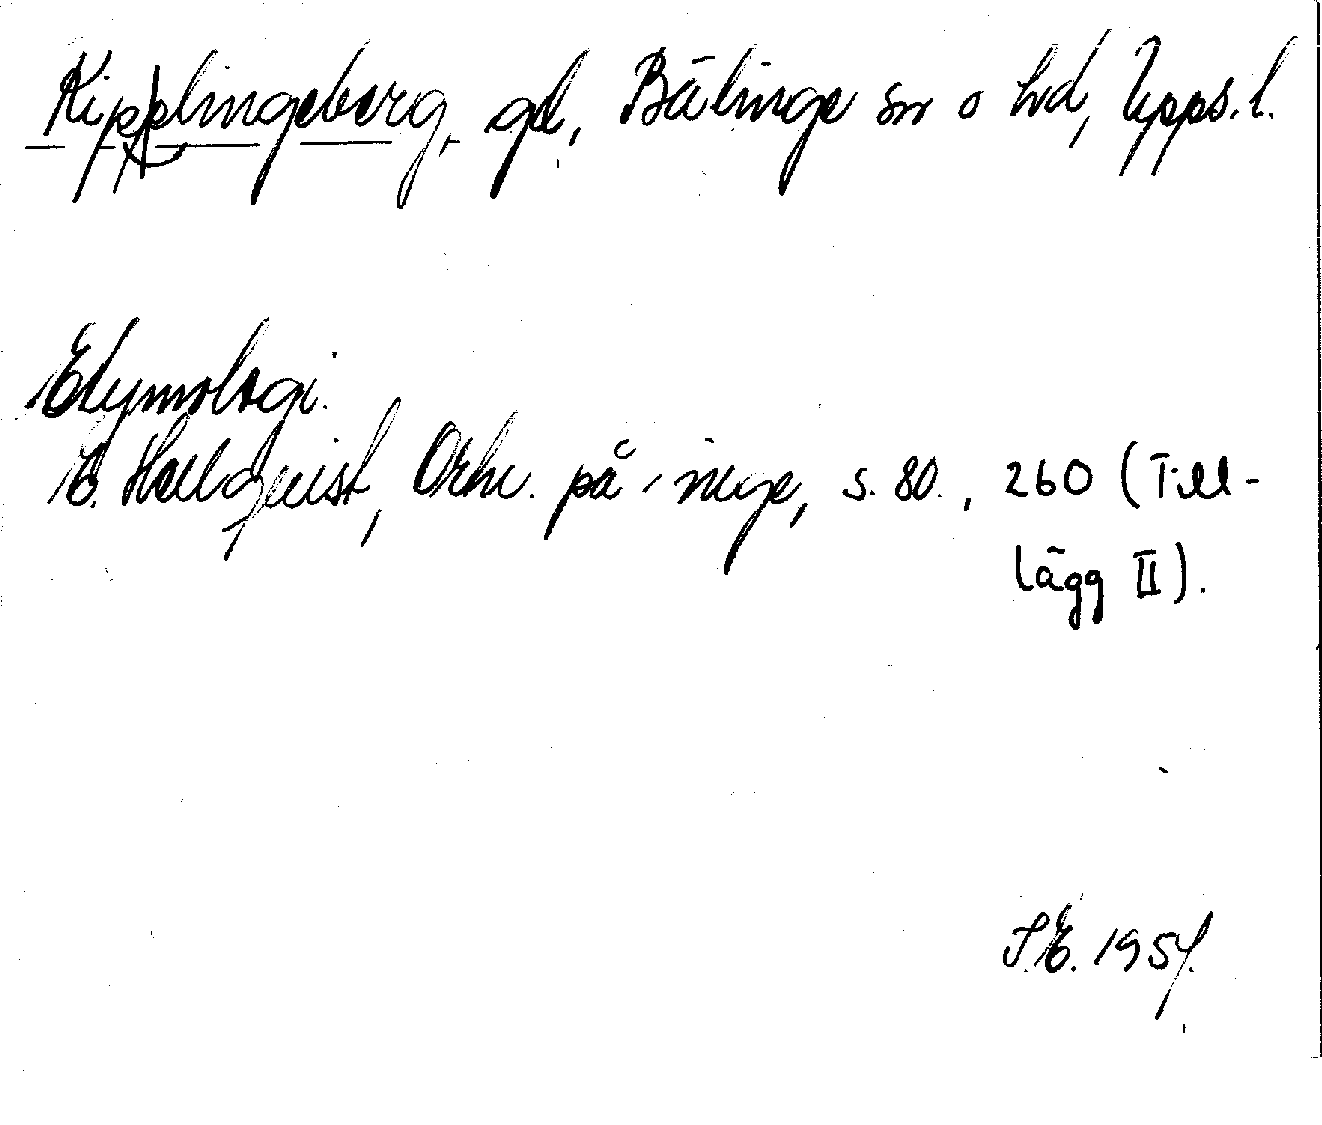 Kipplingeberg, gd, Bälinge sn o hd, Upps. l.
Etymologi.
E. Hellquist, Ortn. på -inge, s. 80., 260 (Till-
lägg II).
S.E. 1954.